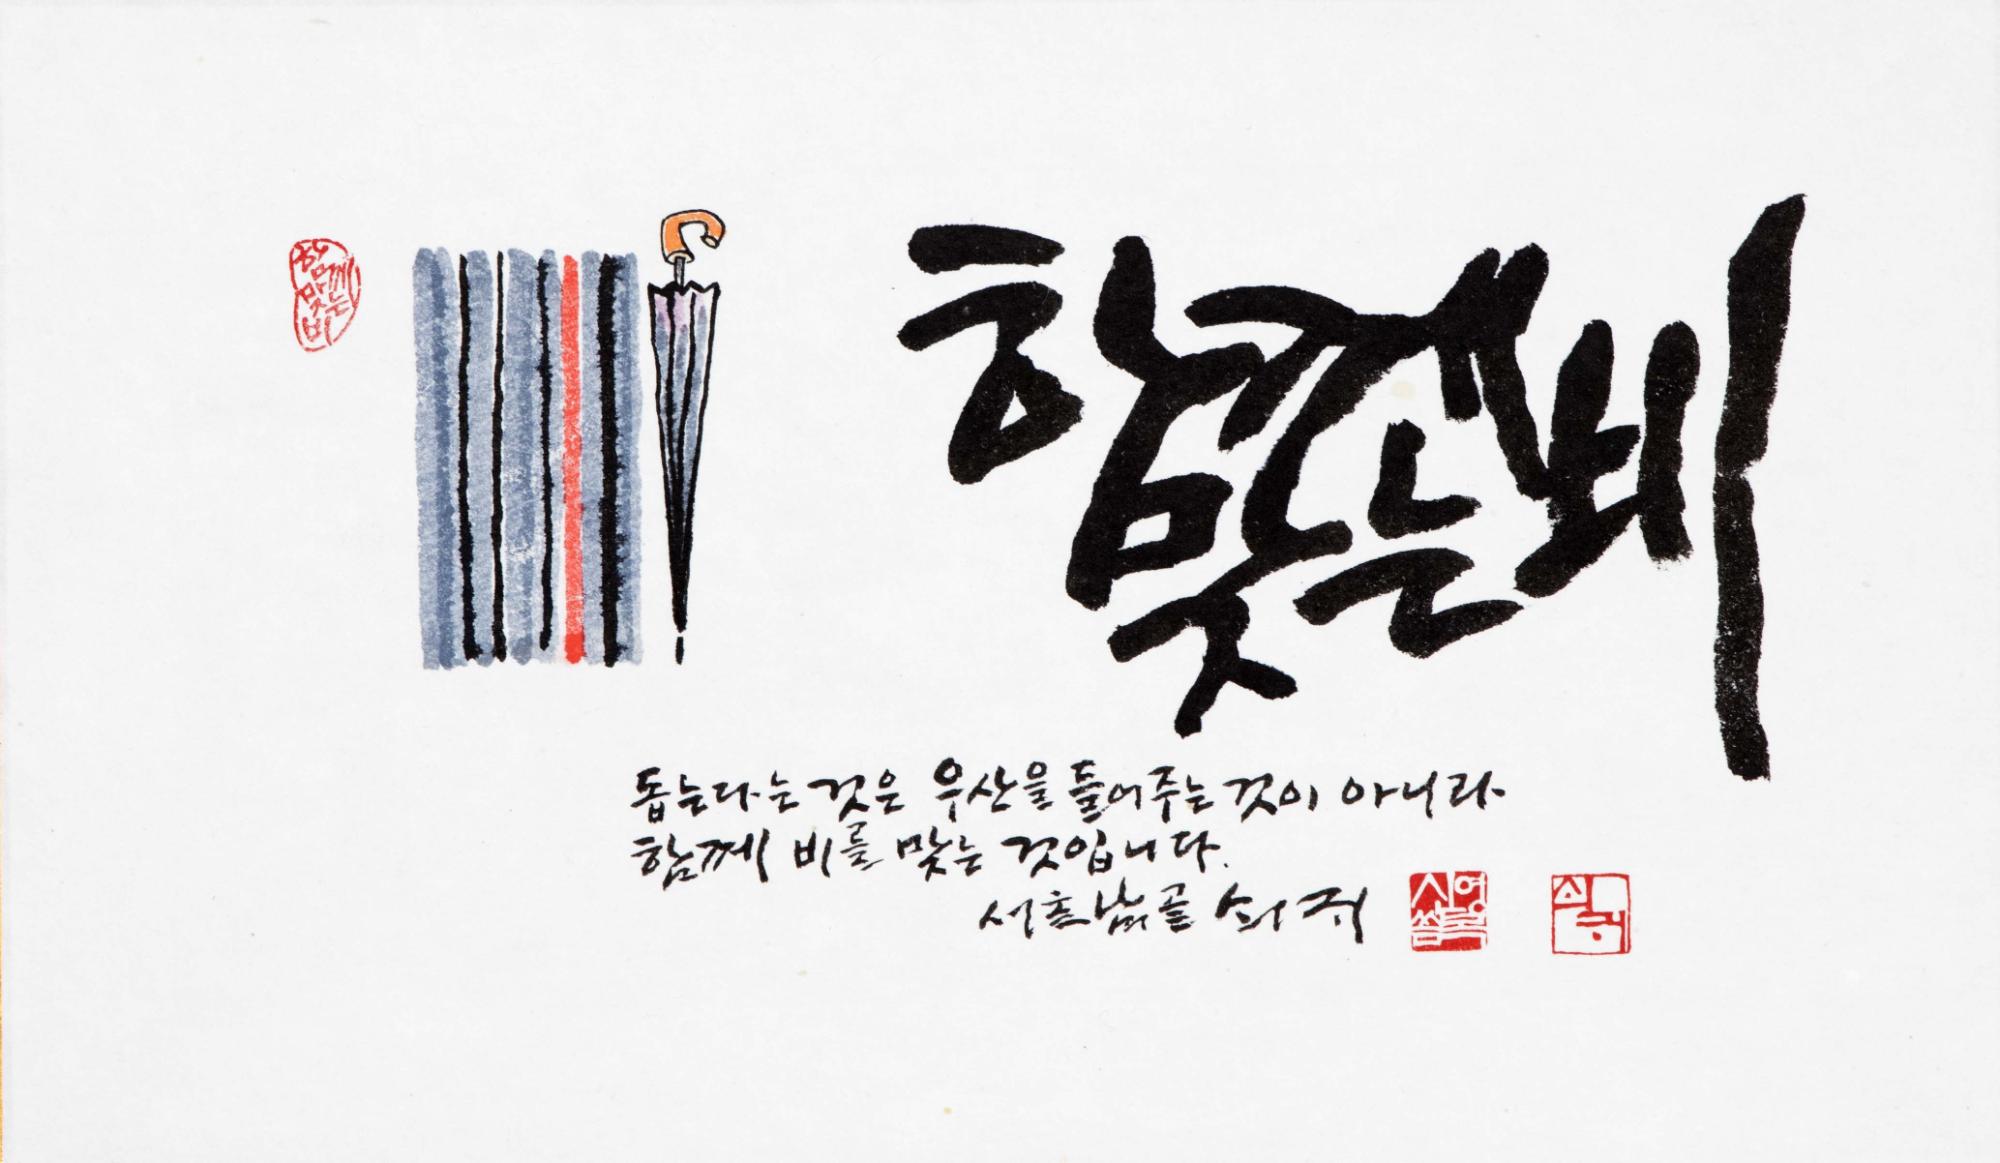 함께
맞는 비
돕는다는 것은 우산을 들어주는 것이 아니라
함께 비를 맞는 것입니다.
쇠귀
함께
맞는
비
신영복